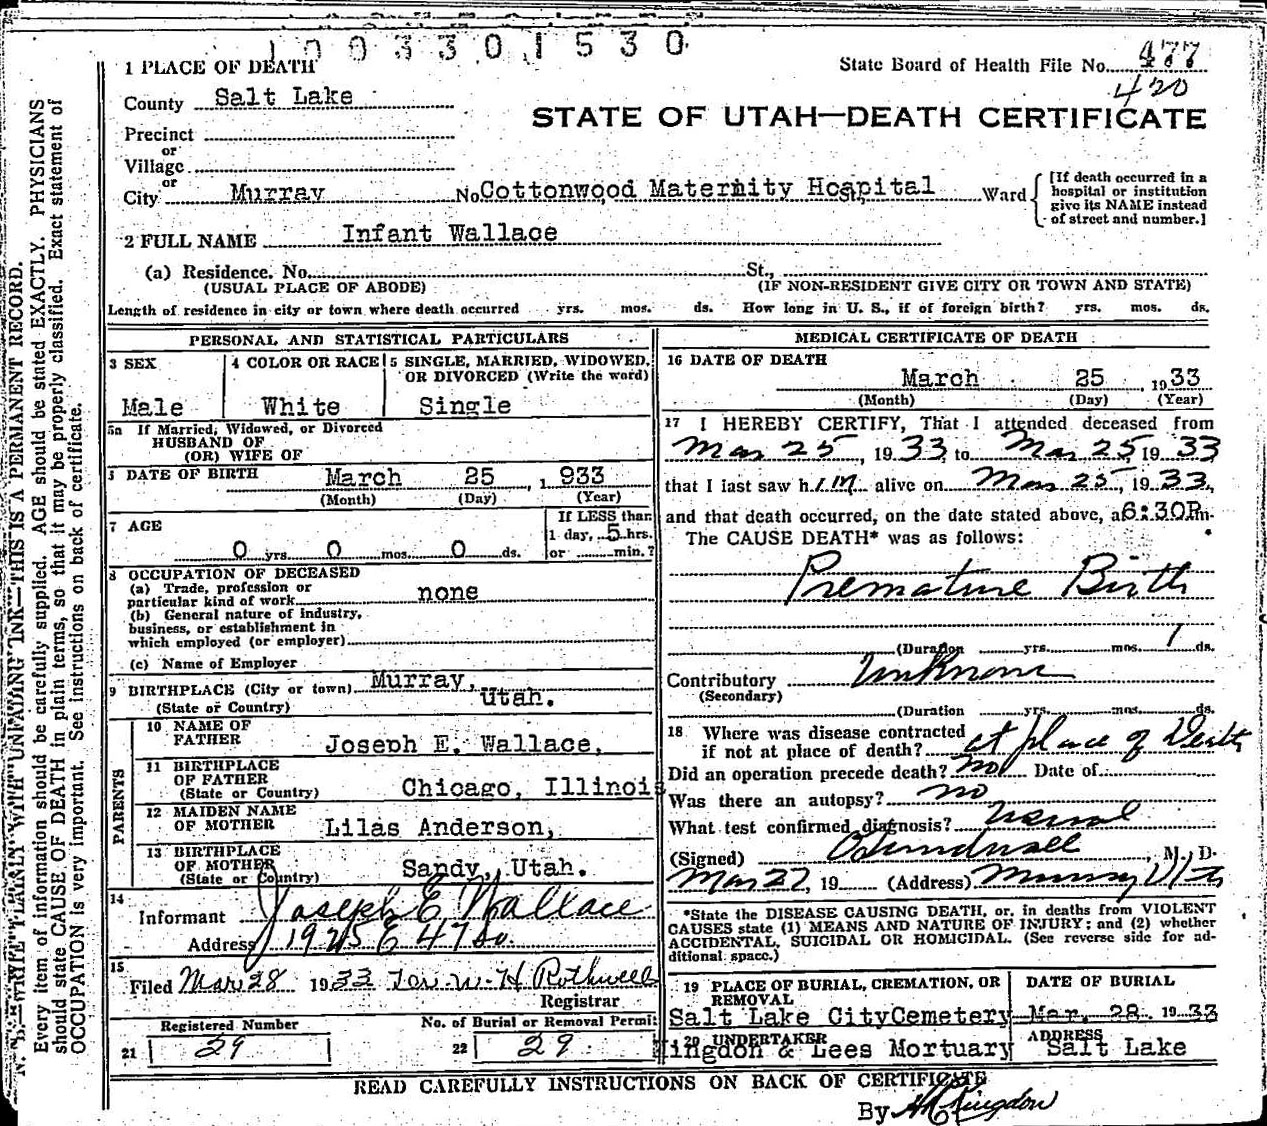 1003301530
1 PLACE OF DEATH
State Board of Health File No. 477
420
County Salt Lake
STATE OF UTAH—DEATH CERTIFICATE
Precinct
or
Village
or
City Murray No. Cottonwood Maternity Hospital St., Ward
[If death occurred in a hospital or institution give its NAME instead of street and number.]
2 FULL NAME Infant Wallace
(a) Residence. No. St.,
(USUAL PLACE OF ABODE) (IF NON-RESIDENT GIVE CITY OR TOWN AND STATE)
Length of residence in city or town where death occurred yrs. mos. ds. How long in U. S., if of foreign birth? yrs. mos. ds.
PERSONAL AND STATISTICAL PARTICULARS
3 SEX
Male
4 COLOR OR RACE
White
5 SINGLE, MARRIED, WIDOWED,
OR DIVORCED (Write the word)
Single
5a If Married, Widowed, or Divorced
HUSBAND OF
(OR) WIFE OF
DATE OF BIRTH March 25, 1933
(Month) (Day) (Year)
7 AGE
0 yrs. 0 mos. 0 ds.
If LESS than
1 day, 5 hrs.
or min.?
8 OCCUPATION OF DECEASED
(a) Trade, profession or
particular kind of work none
(b) General nature of industry,
business, or establishment in
which employed (or employer)
(c) Name of Employer
9 BIRTHPLACE (City or town) Murray,
(State or Country) Utah.
PARENTS
10 NAME OF
FATHER Joseph E. Wallace,
11 BIRTHPLACE
OF FATHER
(State or Country) Chicago, Illinois
12 MAIDEN NAME
OF MOTHER Lilas Anderson,
13 BIRTHPLACE
OF MOTHER
(State or Country) Sandy, Utah.
14
Informant Joseph E Wallace
Address 1925 E 47 So.
15
Filed Mar 28 1933 W. H. Rothwell
Registrar
Registered Number
21 29
No. of Burial or Removal Permit
22 29
MEDICAL CERTIFICATE OF DEATH
16 DATE OF DEATH
March 25, 1933
(Month) (Day) (Year)
17 I HEREBY CERTIFY, That I attended deceased from
Mar 25, 1933, to Mar 25, 1933
that I last saw him alive on Mar 25, 1933,
and that death occurred, on the date stated above, at 6:30P.m.
The CAUSE DEATH* was as follows:
Premature Birth
(Duration yrs. mos. 1 ds.
Contributory Unknown
(Secondary)
(Duration yrs. mos. ds.
18 Where was disease contracted
if not at place of death? at place of Death
Did an operation precede death? no Date of
Was there an autopsy? no
What test confirmed diagnosis? usual
(Signed) M. D.
Mar 27, 19 (Address) Murray Utah
*State the DISEASE CAUSING DEATH, or, in deaths from VIOLENT
CAUSES state (1) MEANS AND NATURE OF INJURY; and (2) whether
ACCIDENTAL, SUICIDAL OR HOMICIDAL. (See reverse side for ad-
ditional space.)
19 PLACE OF BURIAL, CREMATION, OR
REMOVAL
Salt Lake City Cemetery
DATE OF BURIAL
Mar. 28, 1933
20 UNDERTAKER
Kingdon & Lees Mortuary
ADDRESS
Salt Lake
READ CAREFULLY INSTRUCTIONS ON BACK OF CERTIFICATE
By Kingdon
N. B.—WRITE PLAINLY WITH UNFADING INK—THIS IS A PERMANENT RECORD.
Every item of information should be carefully supplied. AGE should be stated EXACTLY. PHYSICIANS
should state CAUSE OF DEATH in plain terms, so that it may be properly classified. Exact statement of
OCCUPATION is very important. See instructions on back of certificate.